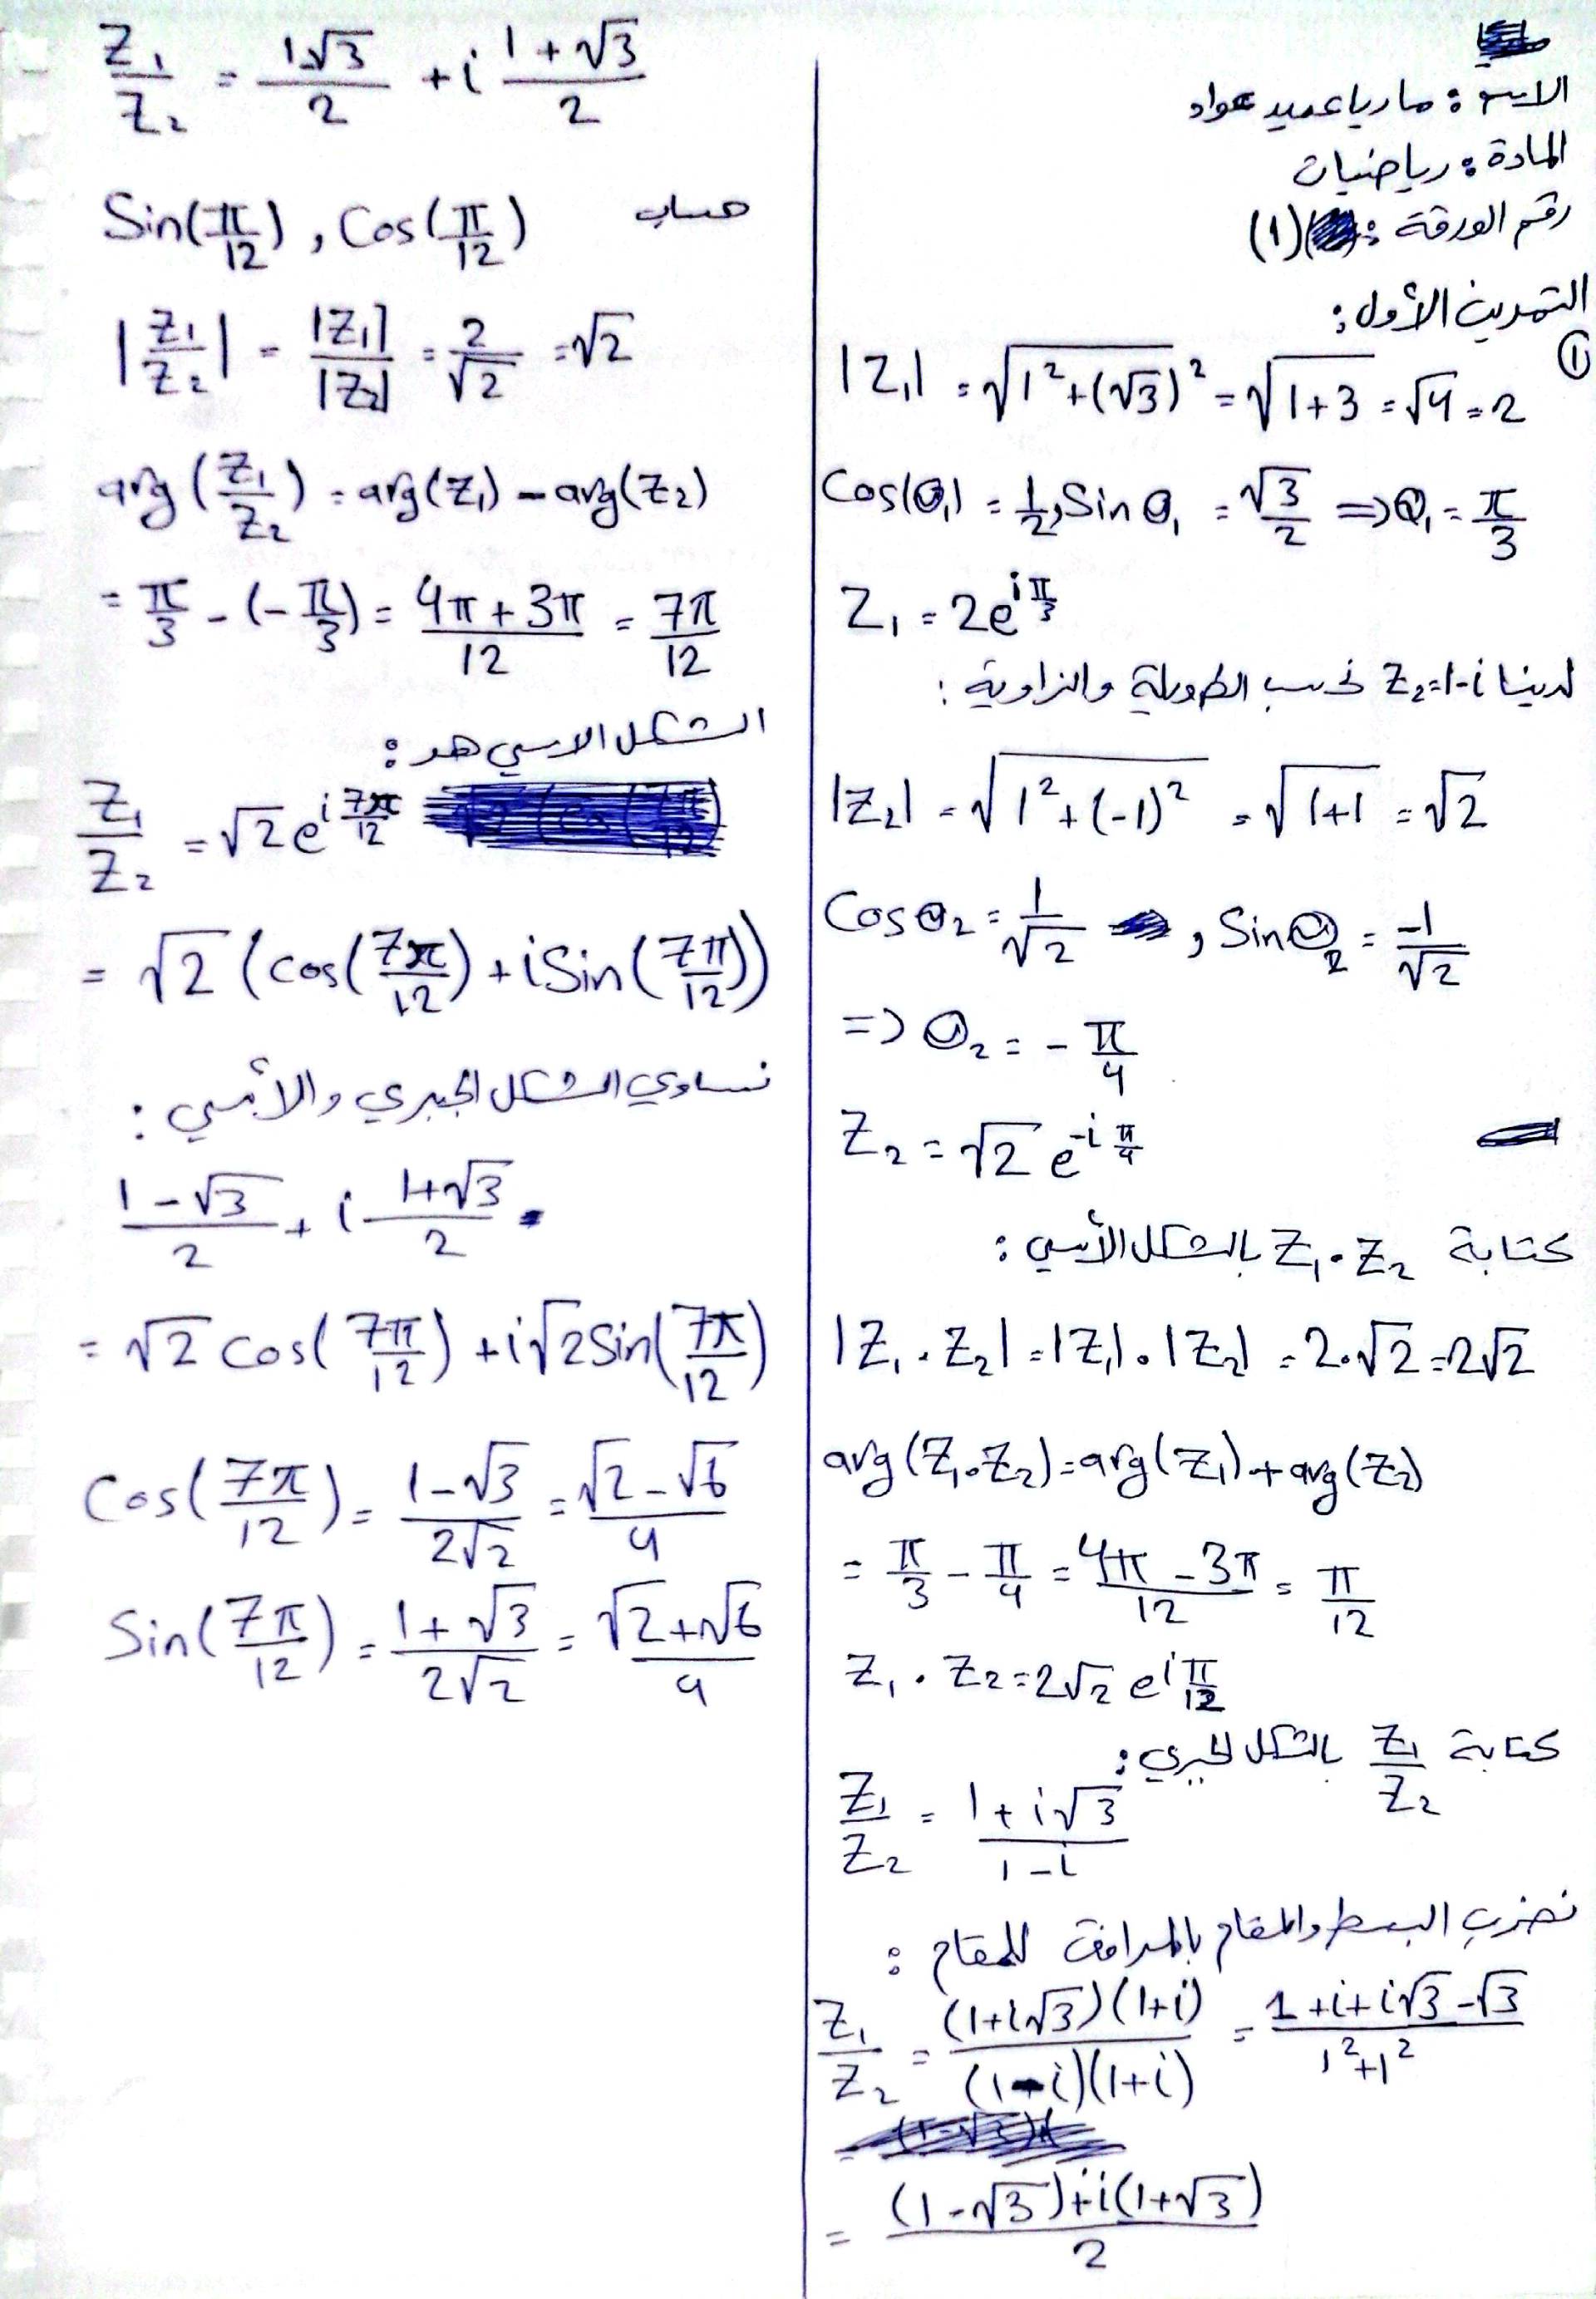 الاسم : ماريا عميد عواد
المادة : رياضيات
رقم الورقة : (1)
التمرين الأول :
①
|Z₁| = √(1² + (√3)²) = √(1+3) = √4 = 2
Cos(θ₁) = 1/2 , Sin θ₁ = √3/2 => θ₁ = π/3
Z₁ = 2e^(i π/3)
لدينا Z₂ = 1-i نحسب الطويلة والزاوية :
|Z₂| = √(1² + (-1)²) = √(1+1) = √2
Cos θ₂ = 1/√2 , Sin θ₂ = -1/√2
=> θ₂ = - π/4
Z₂ = √2 e^(-i π/4)
كتابة Z₁ . Z₂ بالشكل الأسي :
|Z₁ . Z₂| = |Z₁| . |Z₂| = 2.√2 = 2√2
arg (Z₁.Z₂) = arg(Z₁) + arg(Z₂)
= π/3 - π/4 = (4π - 3π)/12 = π/12
Z₁ . Z₂ = 2√2 e^(i π/12)
كتابة Z₁/Z₂ بالشكل الجبري :
Z₁/Z₂ = (1 + i√3)/(1 - i)
نضرب البسط والمقام بالمرافق للمقام :
Z₁/Z₂ = (1+i√3)(1+i)/(1-i)(1+i) = (1 + i + i√3 - √3)/(1² + 1²)
= ((1-√3) + i(1+√3))/2
Z₁/Z₂ = (1-√3)/2 + i (1+√3)/2
حساب Sin(π/12) , Cos(π/12)
|Z₁/Z₂| = |Z₁|/|Z₂| = 2/√2 = √2
arg (Z₁/Z₂) = arg(Z₁) - arg(Z₂)
= π/3 - (- π/3) = (4π + 3π)/12 = 7π/12
الشكل الاسي هو :
Z₁/Z₂ = √2 e^(i 7π/12)
= √2 (cos(7π/12) + i Sin(7π/12))
نساوي الشكل الجبري والأسي :
(1-√3)/2 + i (1+√3)/2
= √2 cos(7π/12) + i√2 Sin(7π/12)
Cos(7π/12) = (1-√3)/(2√2) = (√2-√6)/4
Sin(7π/12) = (1+√3)/(2√2) = (√2+√6)/4